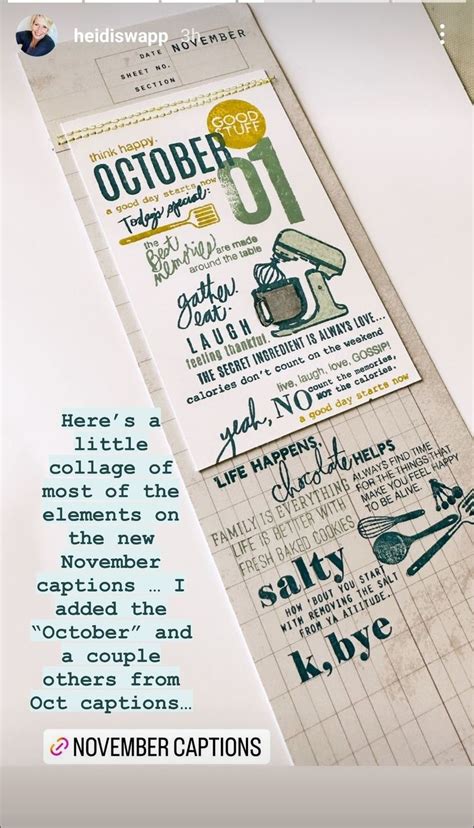 heidiswapp 3h
DATE NOVEMBER
SHEET NO.
SECTION
think happy.
GOOD
STUFF
OCTOBER
01
a good day starts now
Today's special:
the Best
memories are made
around the table
gather.
eat.
LAUGH
feeling thankful.
THE SECRET INGREDIENT IS ALWAYS LOVE...
calories don't count on the weekend
live, laugh, love, GOSSIP!
yeah, NO
count the memories,
NOT the calories.
a good day starts now
'LIFE HAPPENS,
chocolate HELPS
FAMILY IS EVERYTHING
LIFE IS BETTER WITH
FRESH BAKED COOKIES
ALWAYS FIND TIME
FOR THE THINGS THAT
MAKE YOU FEEL HAPPY
TO BE ALIVE.
salty
HOW 'BOUT YOU START
WITH REMOVING THE SALT
FROM YA ATTITUDE.
k, bye
Here's a
little
collage of
most of the
elements on
the new
November
captions … I
added the
“October” and
a couple
others from
Oct captions…
NOVEMBER CAPTIONS